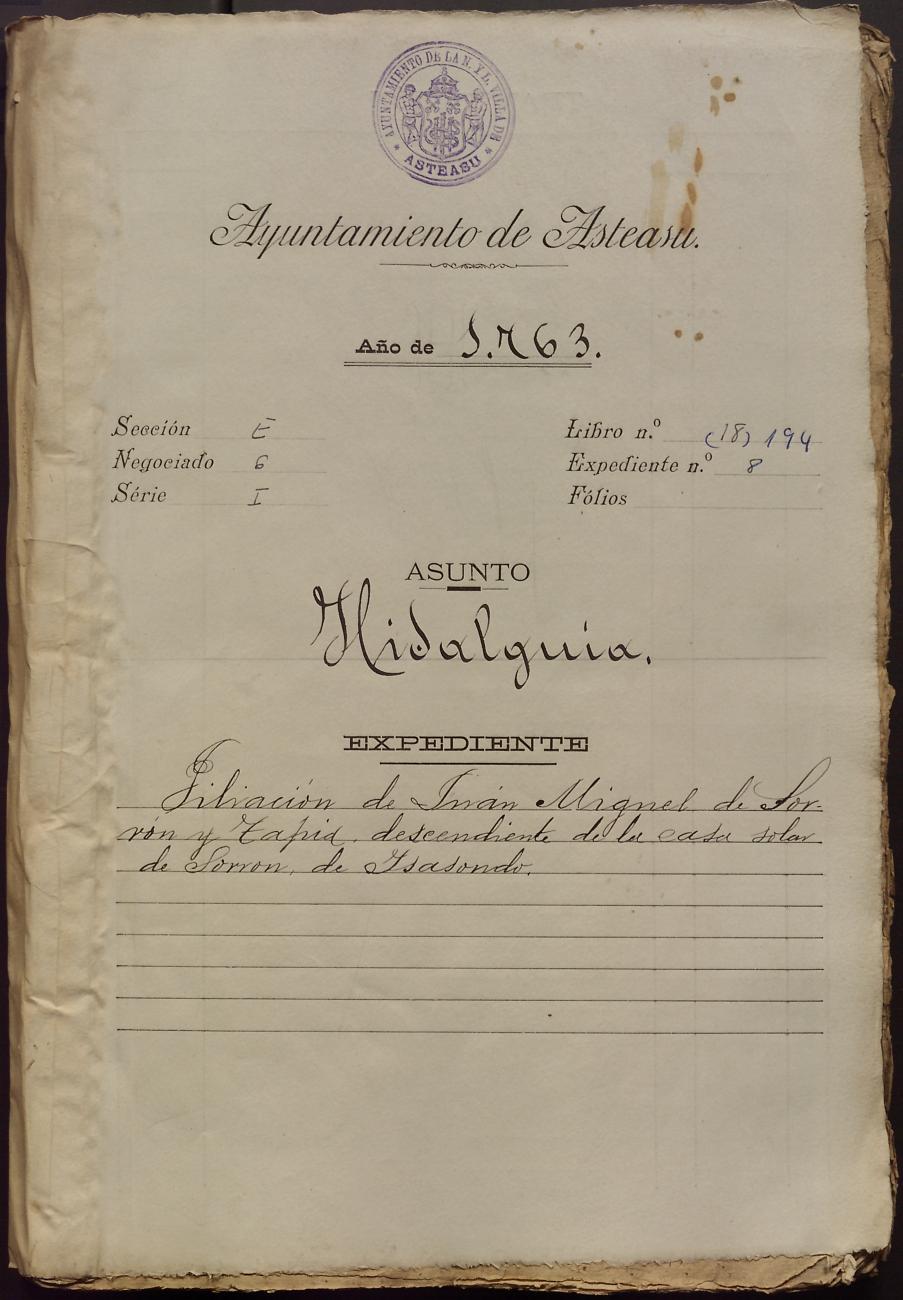 AYUNTAMIENTO DE LA N. Y L. VILLA DE
* ASTEASU *
Ayuntamiento de Asteasu.
Año de 1.763.
Sección E
Negociado 6
Série I
Libro n.º (18) 194
Expediente n.º 8
Fólios
ASUNTO
Hidalguia.
EXPEDIENTE
Filiación de Juán Miguel de Sor-
rón y Tapia descendiente de la casa solar
de Sorron, de Isasondo.